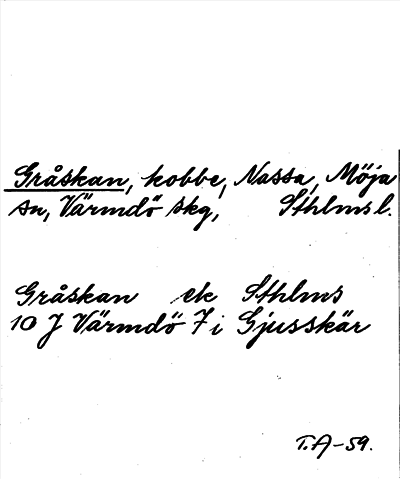 Gråskan, kobbe, Nassa, Möja
sn, Värmdö skg, Sthlms l.
Gråskan ek Sthlms
10 J Värmdö 7 i Gjusskär
T.A-59.